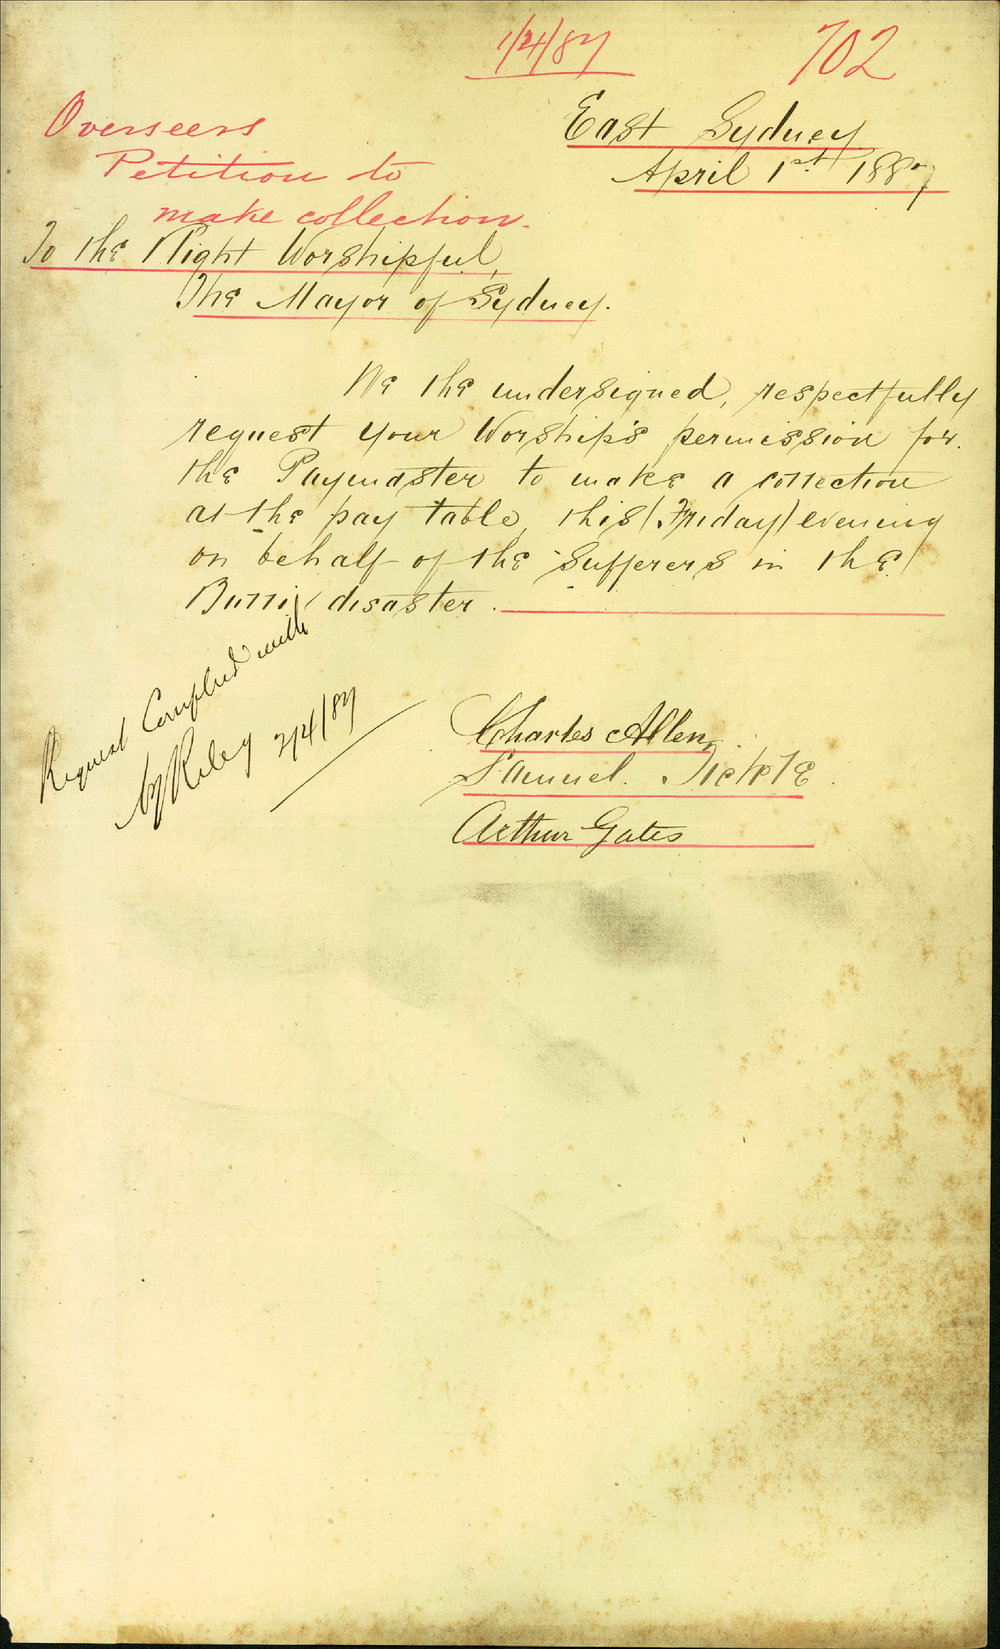 1/4/87
702
Overseers
Petition to
make collection.
East Sydney
April 1st 1887
To the Right Worshipful,
The Mayor of Sydney.
We the undersigned, respectfully
request your Worship's permission for
the Paymaster to make a collection
at the pay table, this (Friday) evening
on behalf of the Sufferers in the
Bulli disaster.
Request Complied with
by Riley 2/4/87
Charles Allen
Samuel. Tickle.
Arthur Gates